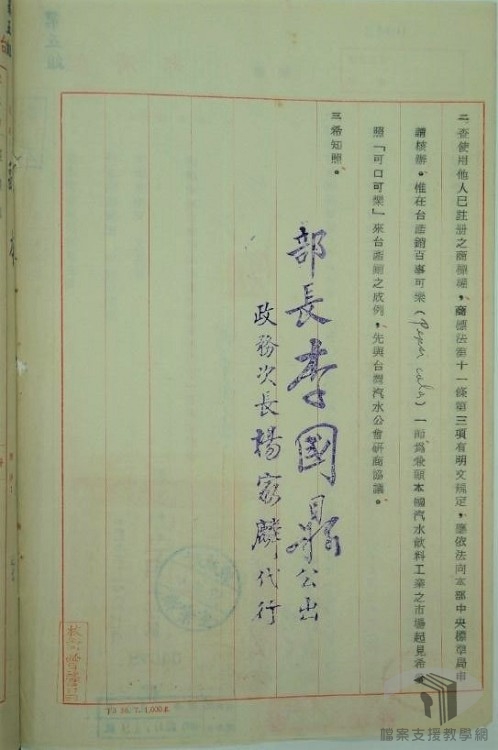 二查使用他人已註册之商標權，商標法第十一條第三項有明文規定，應依法向本部中央標準局申
請核辦。惟在台產銷百事可樂（Pepsi cola）一節爲兼顧本國汽水飲料工業之市場起見希參
照「可口可樂」來台產銷之成例，先與台灣汽水公會研商協議。
三希知照。
部長李國鼎公出
政務次長楊家麟代行
檔案支援教學網